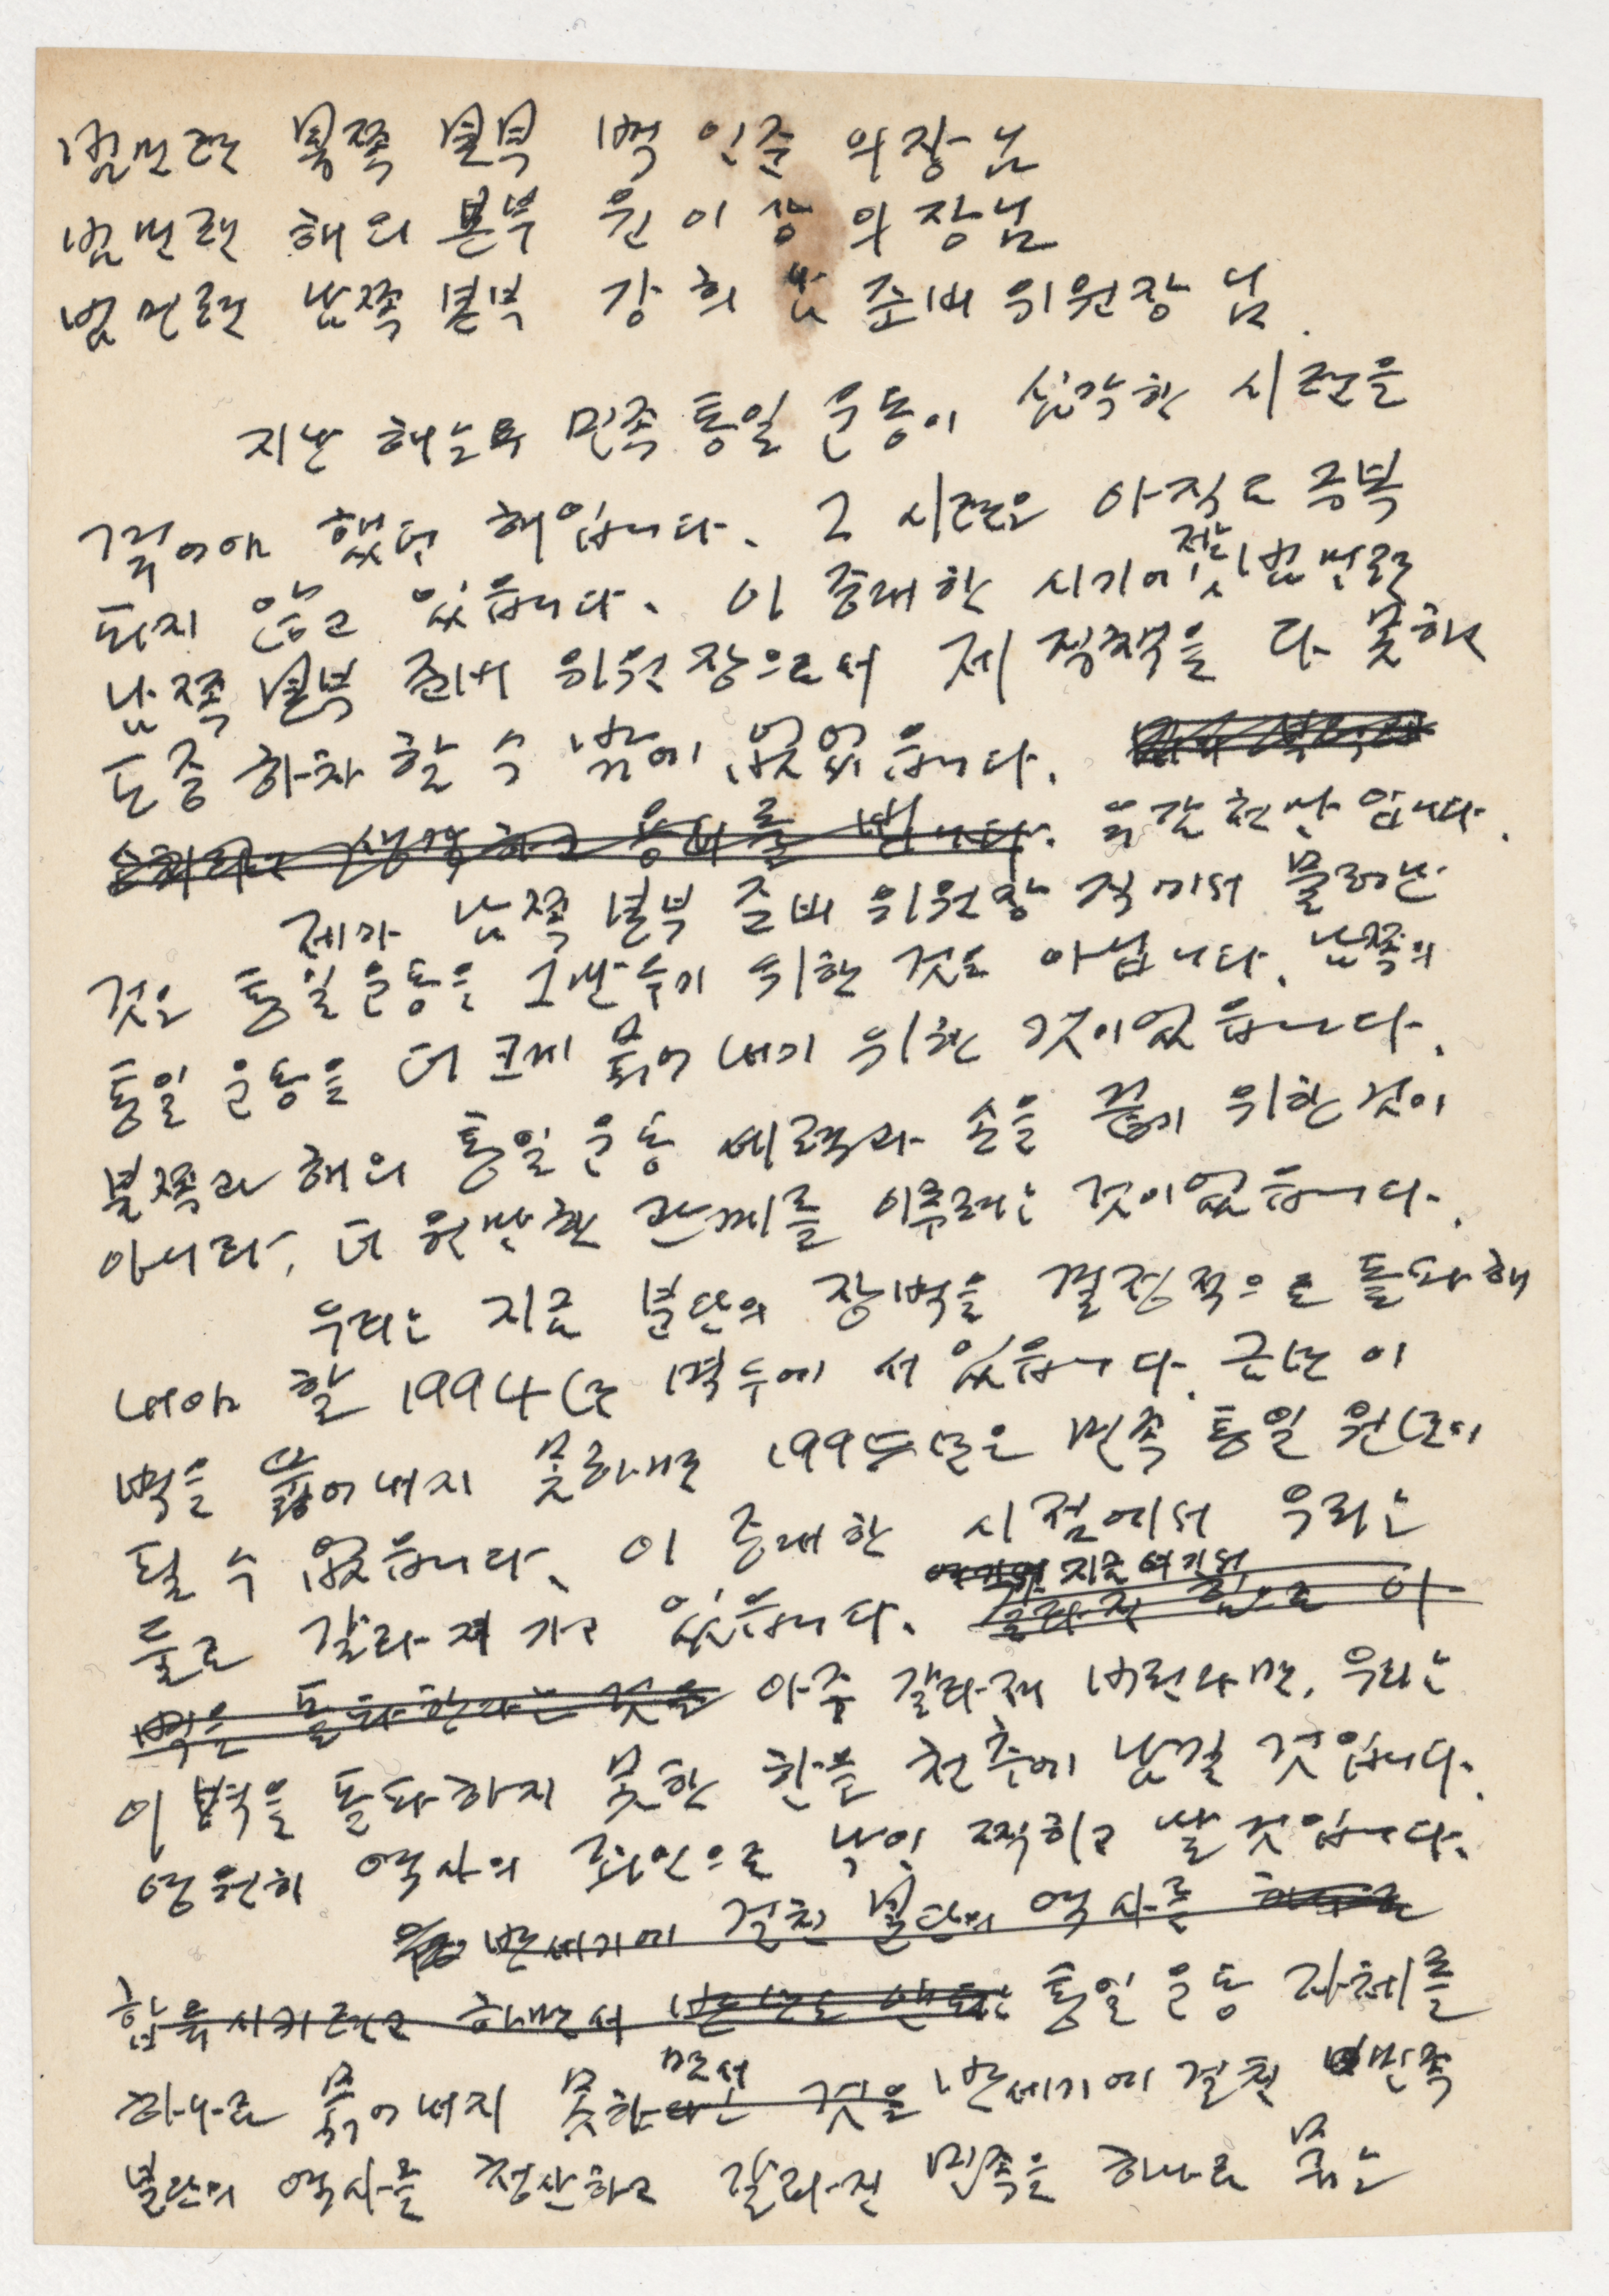 범민련 북쪽 본부 백 인준 의장님
범민련 해외 본부 윤 이상 의장님
범민련 남쪽 본부 강 희 남 준비 위원장 님.
지난 해는 민족 통일 운동이 심각한 시련을
겪어야 했던 해입니다. 그 시련은 아직도 극복
되지 않고 있습니다. 이 중대한 시기에 전 범민련
남쪽 본부 준비 위원장으로서 제 직책을 다 못하고
도중 하차 할 수 밖에 없었습니다.
생각하고 용서를 빕니다. 유감 천만 입니다.
제가 남쪽 본부 준비 위원장 직에서 물러난
것은 통일 운동을 그만두기 위한 것도 아닙니다. 남쪽의
통일 운동을 더 크게 묶어 내기 위한 것이었습니다.
북쪽과 해외 통일 운동 세력과 손을 끊기 위한 것이
아니라, 더 원만한 관계를 이루려는 것이었습니다.
우리는 지금 분단의 장벽을 결정적으로 돌파해
내야 할 1994년 벽두에 서 있습니다. 금년 이
벽을 뚫어 내지 못하면 1995년은 민족 통일 원년이
될 수 없습니다. 이 중대한 시점에서 우리는
지금 여기서
둘로 갈라져 가고 있습니다. 힘으로 이
벽을 돌파한다는 것을 아주 갈라져 버린다면, 우리는
이 벽을 돌파하지 못한 한을 천추에 남길 것입니다.
영원히 역사의 죄인으로 낙인 찍히고 말 것입니다.
반세기에 걸친 분단의 역사를 하나로
합류시키려고 하면서 통일 운동 자체를
면서
하나로 묶어 내지 못한다는 것을 반세기에 걸친 민족
분단의 역사를 청산하고 갈라진 민족을 하나로 묶는